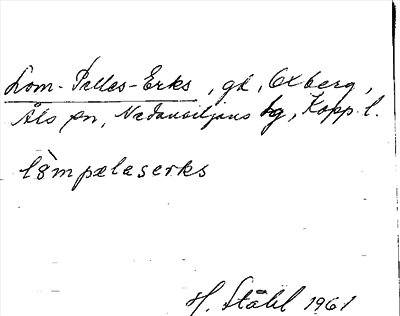 Lom-Pelles-Erks, gd, Oxberg,
Åls sn, Nedansiljans bg, Kopp. l.
lòmpælasærks
H. Ståhl 1961